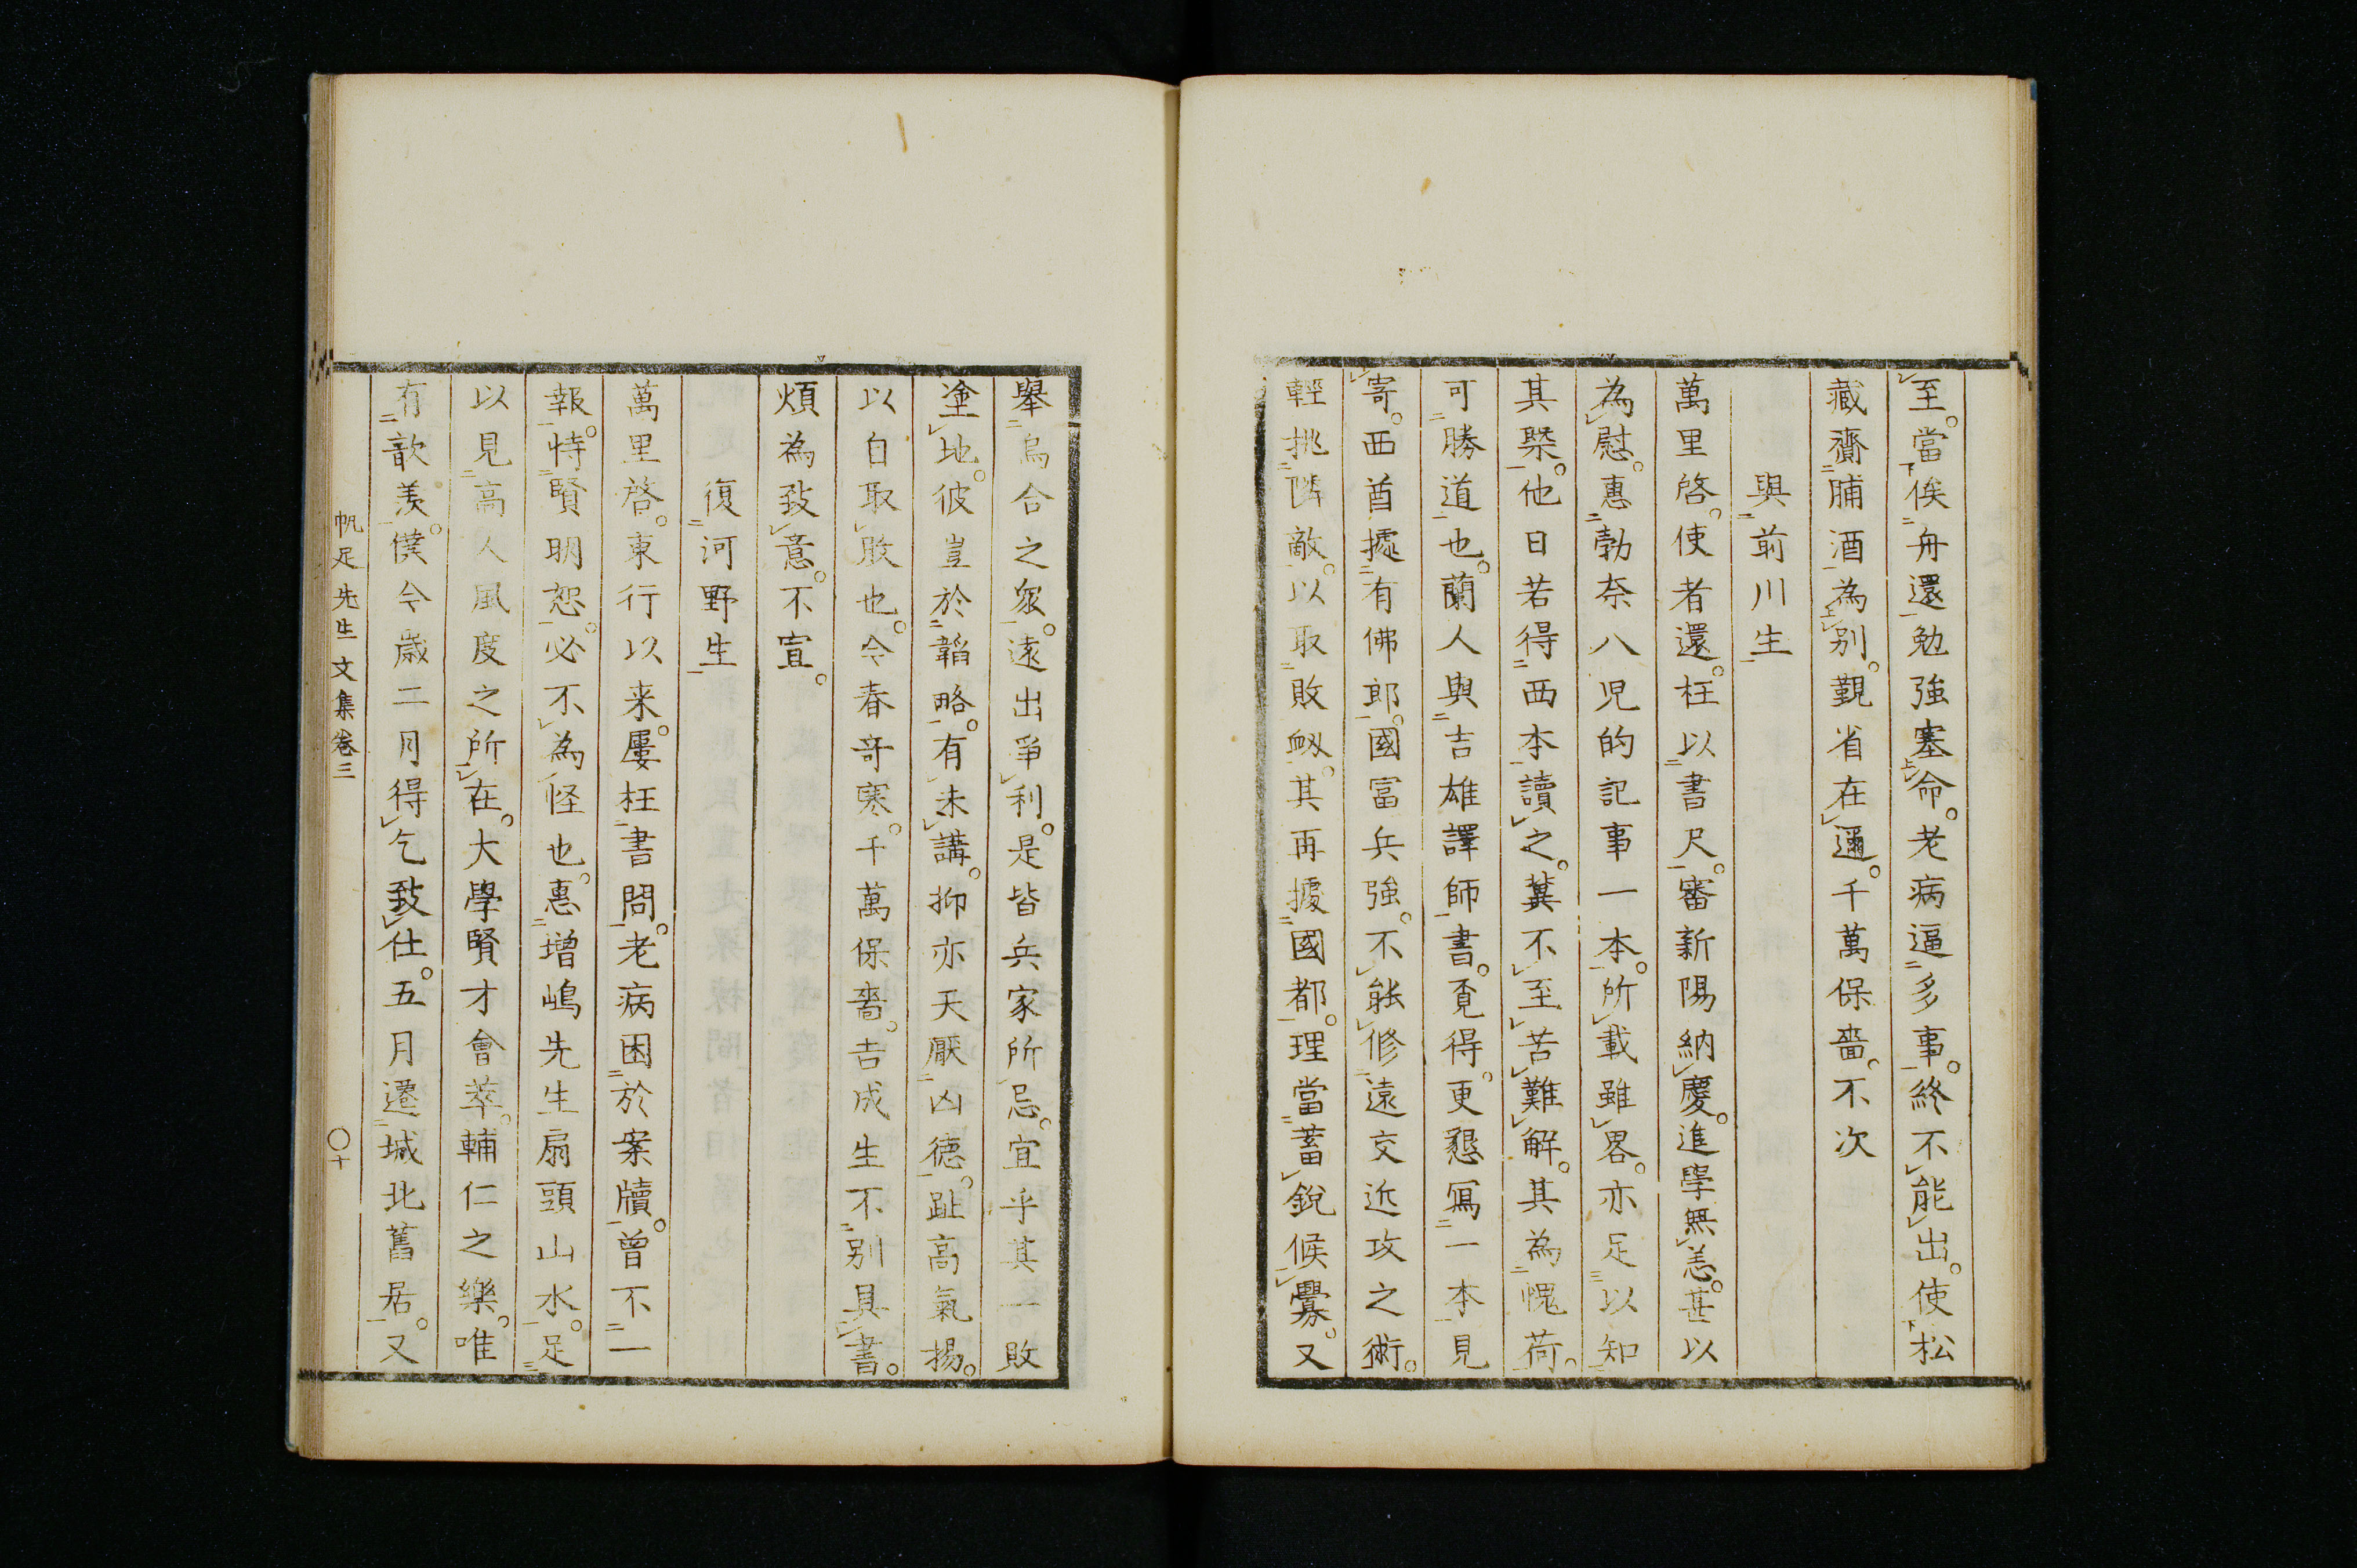 至。當俟舟還勉強塞命。老病逼多事。終不能出。使松
藏齎脯酒為別。覲省在邇。千萬保嗇。不次
與前川生
萬里啓。使者還。枉以書尺。審新陽納慶。進學無恙。甚以
為慰。惠勃奈八児的記事一本。所載雖畧。亦足以知
其槩。他日若得西本讀之。冀不至苦難解。其為愧荷。
可勝道也。蘭人與吉雄譯師書。覔得。更懇寫一本見
寄。西酋據有佛郎。國富兵強。不能修遠交近攻之術。
輕挑隣敵。以取敗衂。其再據國都。理當蓄銳候釁。又
擧烏合之衆。遠出爭利。是皆兵家所忌。宜乎其一敗
塗地。彼豈於韜略。有未講。抑亦天厭凶德。趾高氣揚。
以自取敗也。今春奇寒。千萬保嗇。吉成生不別具書。
煩為致意。不宣。
復河野生
萬里啓。東行以来。屢枉書問。老病困於案牘。曾不一
報。恃賢明恕。必不為怪也。惠増嶋先生扇頭山水。足
以見高人風度之所在。大學賢才會萃。輔仁之樂。唯
有歆羨。僕今歳二月得乞致仕。五月遷城北舊居。又
帆足先生文集卷三
〇十